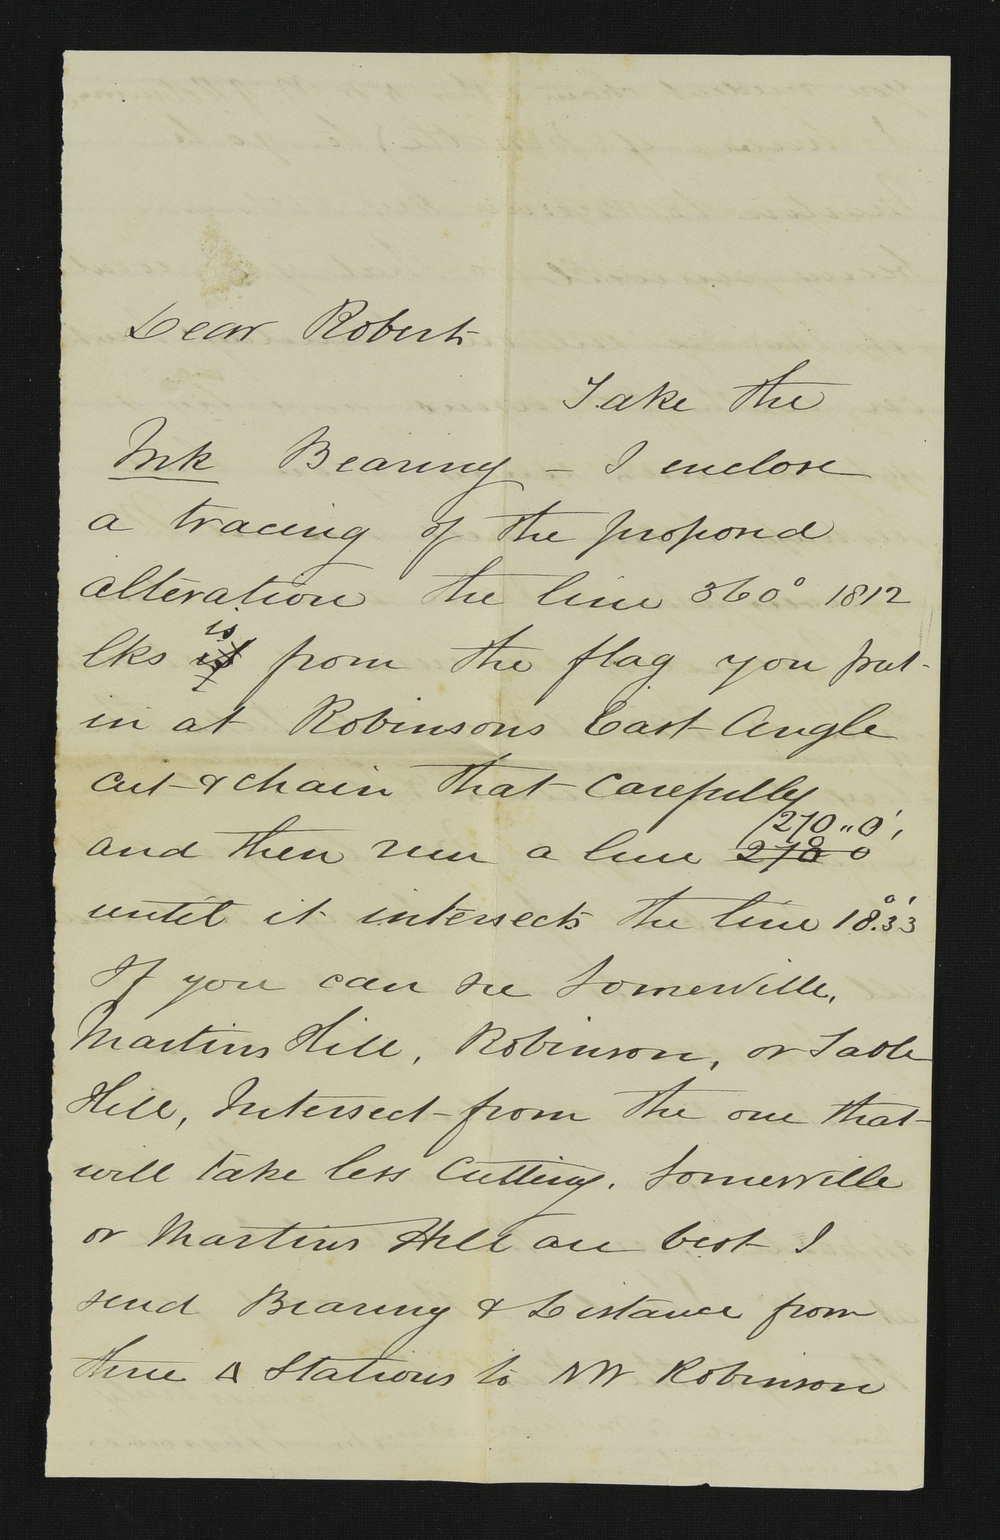 Dear Robert
Take the
Ink Bearing - I enclose
a tracing of the proposed
alteration the line 360° 1812
lks is from the flag you put
in at Robinsons East Angle
cut & chain that carefully
and then run a line 278 0 270„0',
until it intersects the line 18°.33'
If you can see Somerville,
Martins Hill, Robinson, or Table
Hill, Intersect from the one that
will take less cutting. Somerville
or Martins Hill are best I
send Bearing & Distance from
these △ Stations to NW Robinson